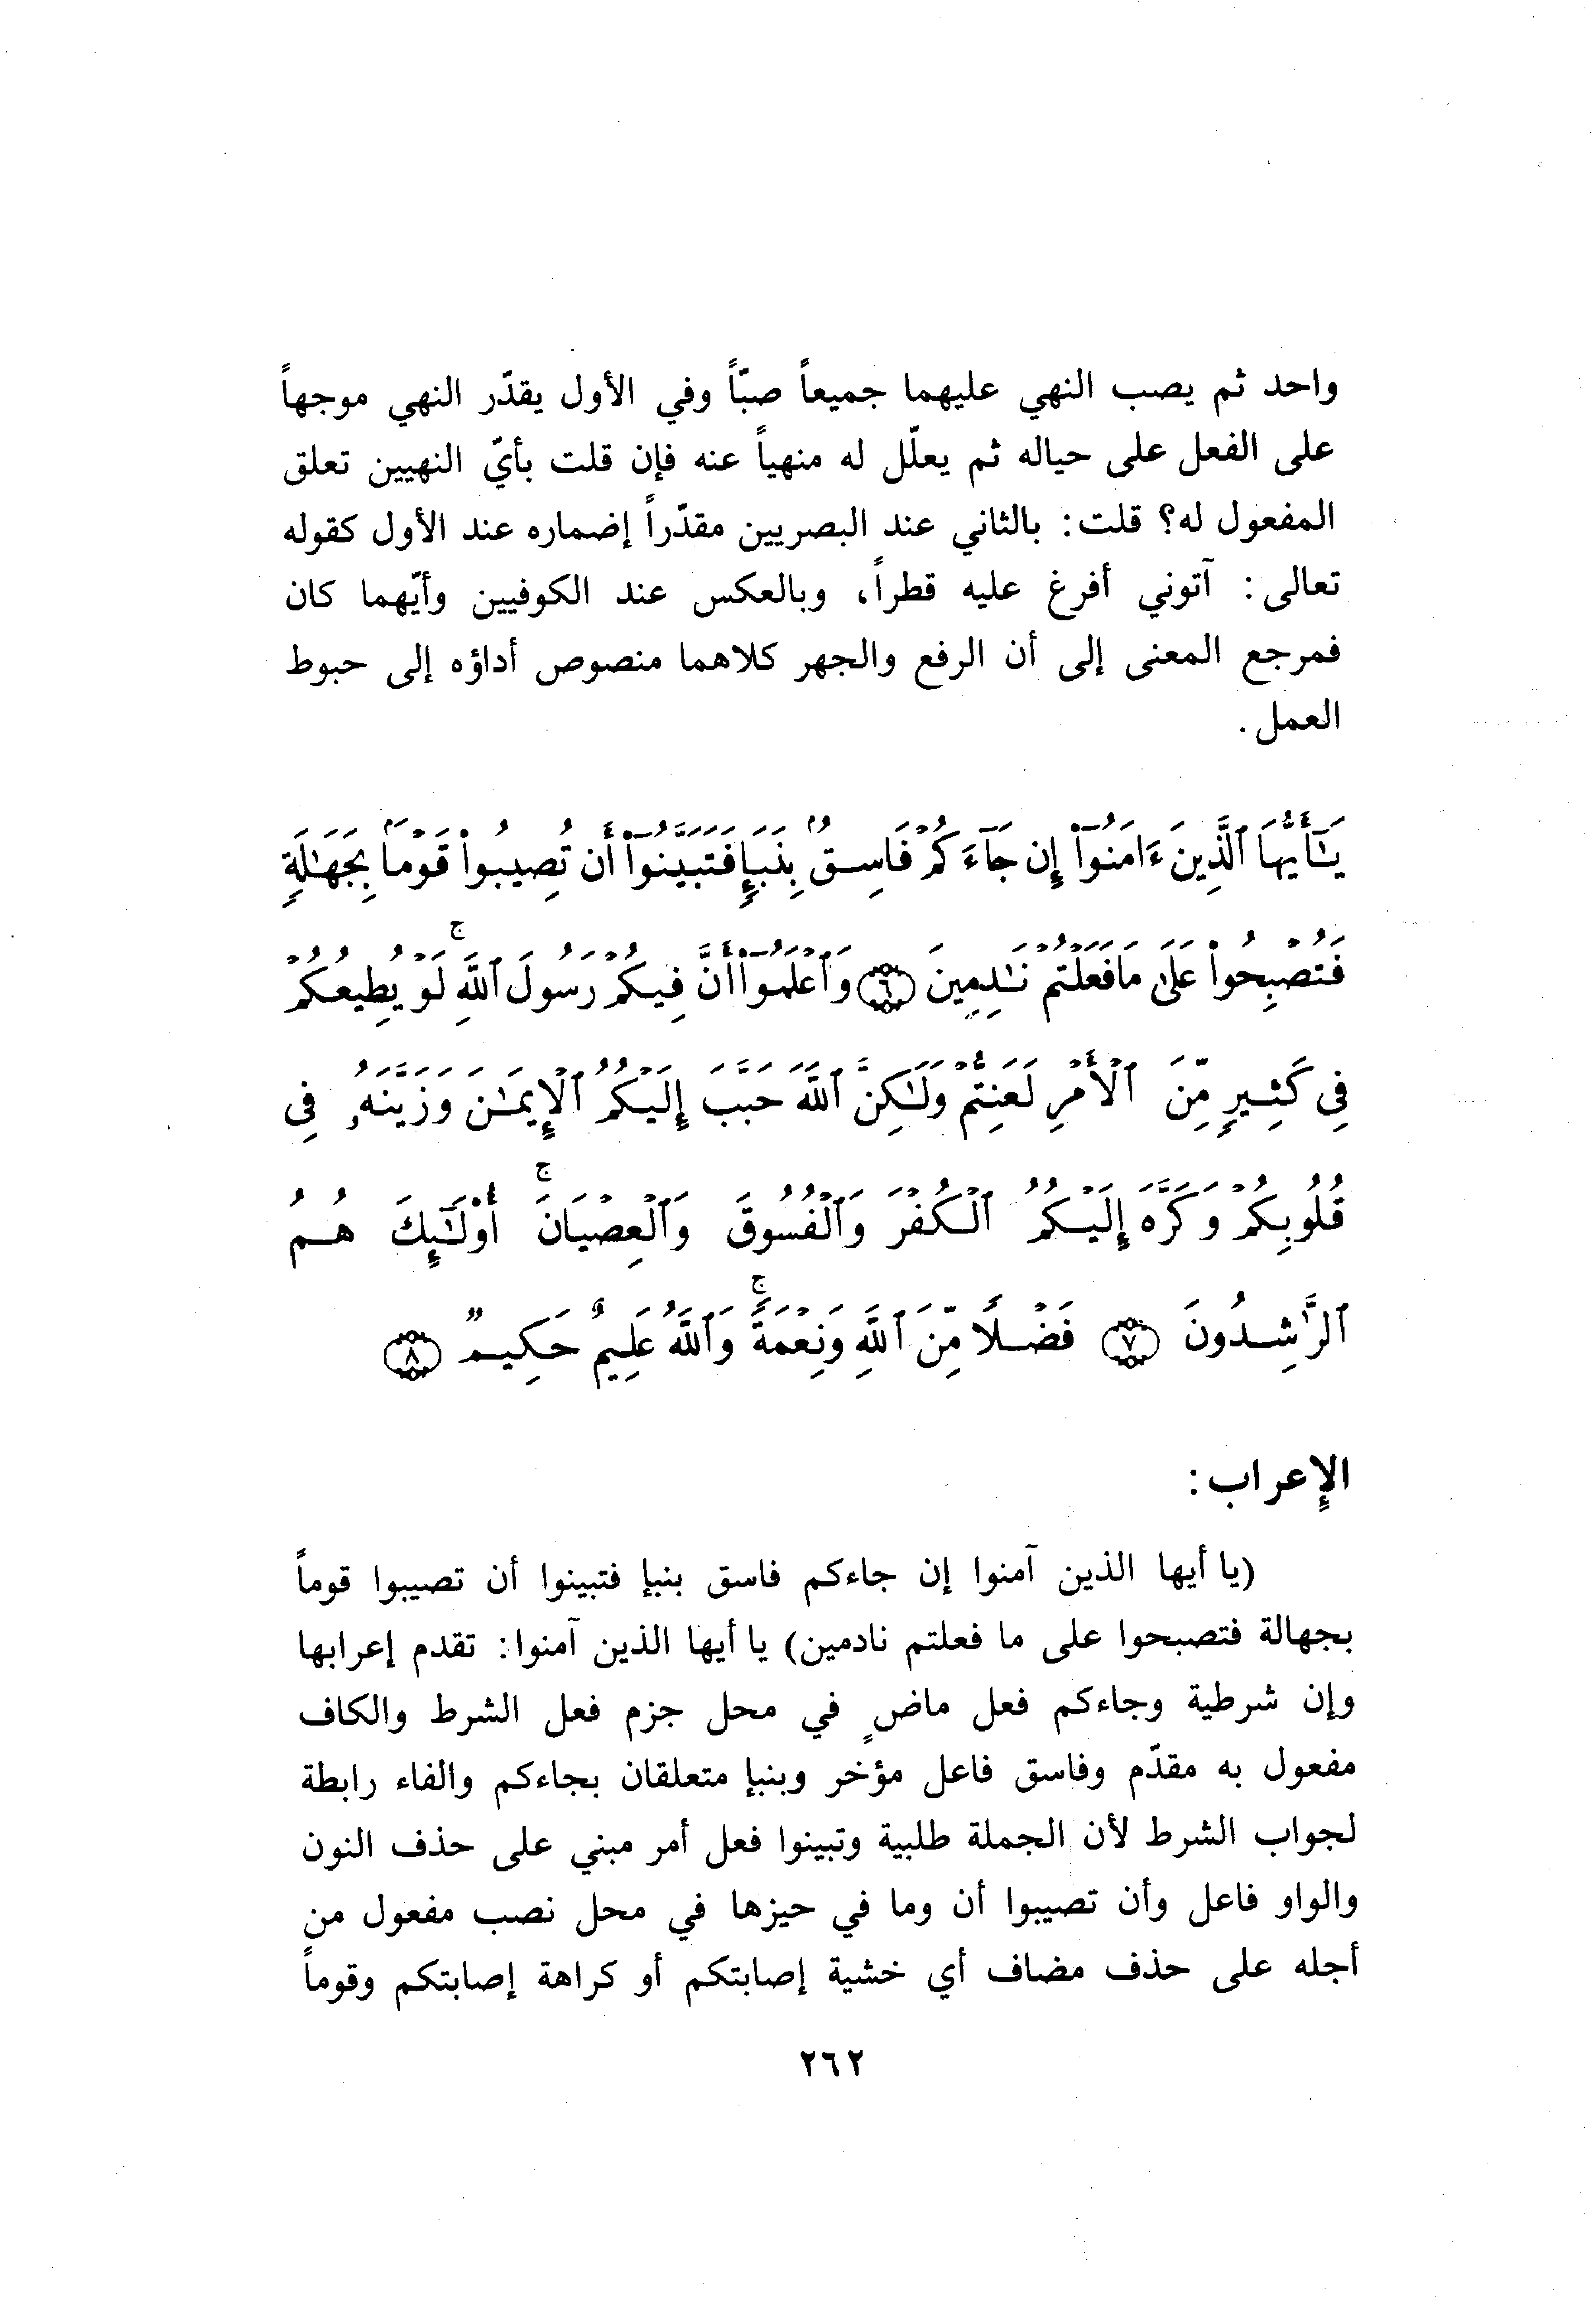 واحد ثم يصب النهي عليهما جميعاً صبّاً وفي الأول يقدّر النهي موجهاً
على الفعل على حياله ثم يعلّل له منهياً عنه فإن قلت بأيّ النهيين تعلق
المفعول له؟ قلت: بالثاني عند البصريين مقدّراً إضماره عند الأول كقوله
تعالى: آتوني أفرغ عليه قطراً، وبالعكس عند الكوفيين وأيّهما كان
فمرجع المعنى إلى أن الرفع والجهر كلاهما منصوص أداؤه إلى حبوط
العمل.
يَـٰٓأَيُّهَا ٱلَّذِينَ ءَامَنُوٓا۟ إِن جَآءَكُمْ فَاسِقٌۢ بِنَبَإٍ فَتَبَيَّنُوٓا۟ أَن تُصِيبُوا۟ قَوْمًۢا بِجَهَـٰلَةٍ
فَتُصْبِحُوا۟ عَلَىٰ مَا فَعَلْتُمْ نَـٰدِمِينَ ﴿٦﴾ وَٱعْلَمُوٓا۟ أَنَّ فِيكُمْ رَسُولَ ٱللَّهِ ۚ لَوْ يُطِيعُكُمْ
فِى كَثِيرٍ مِّنَ ٱلْأَمْرِ لَعَنِتُّمْ وَلَـٰكِنَّ ٱللَّهَ حَبَّبَ إِلَيْكُمُ ٱلْإِيمَـٰنَ وَزَيَّنَهُۥ فِى
قُلُوبِكُمْ وَكَرَّهَ إِلَيْكُمُ ٱلْكُفْرَ وَٱلْفُسُوقَ وَٱلْعِصْيَانَ ۚ أُو۟لَـٰٓئِكَ هُمُ
ٱلرَّٰشِدُونَ ﴿٧﴾ فَضْلًا مِّنَ ٱللَّهِ وَنِعْمَةً ۚ وَٱللَّهُ عَلِيمٌ حَكِيمٌ ﴿٨﴾
الإعراب:
(يا أيها الذين آمنوا إن جاءكم فاسق بنبإ فتبينوا أن تصيبوا قوماً
بجهالة فتصبحوا على ما فعلتم نادمين) يا أيها الذين آمنوا: تقدم إعرابها
وإن شرطية وجاءكم فعل ماضٍ في محل جزم فعل الشرط والكاف
مفعول به مقدّم وفاسق فاعل مؤخر وبنبإ متعلقان بجاءكم والفاء رابطة
لجواب الشرط لأن الجملة طلبية وتبينوا فعل أمر مبني على حذف النون
والواو فاعل وأن تصيبوا أن وما في حيزها في محل نصب مفعول من
أجله على حذف مضاف أي خشية إصابتكم أو كراهة إصابتكم وقوماً
٢٦٢